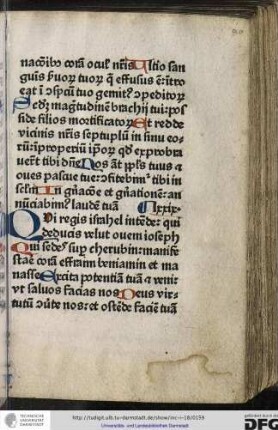 nacōibꝫ corā ocul' nr̄is Ultio san
guīs ẜuorꝝ tuorꝝ q̄ effusus ē: ītro
eat ī ꝯspcū tuo gemitꝰ ꝯpeditorꝝ
Scd'ꝫ mag̃tudinē brachij tui: pos
side filios mortificatorꝝ Et redde
vicinis nr̄is septuplū in sinu eo-
rū: īproperiū ip̄orꝝ qd' exproba
uer̄t tibi dn̄e Nos āt ppl's tuus ⁊
oues pascue tue: ꝯfitebimꝰ tibi in
sclm̄ In gn̄acōe et gn̄ationē: an
nūciabimꝰ laudē tuā lxxix
Qui regis israhel intēde: qui
deducis velut ouem ioseph
Qui sedes sup cherubin: manife
stare corā effraim beniamin et ma
nasse Excita potentiā tuā ⁊ veni:
vt saluos facias nos Deus vir-
tutū ꝯūte nos: et ostēde faciē tuā
http://tudigit.ulb.tu-darmstadt.de/show/inc-i-18/0159
Universitäts- und Landesbibliothek Darmstadt
TECHNISCHE
UNIVERSITÄT
DARMSTADT
gefördert durch die
DFG